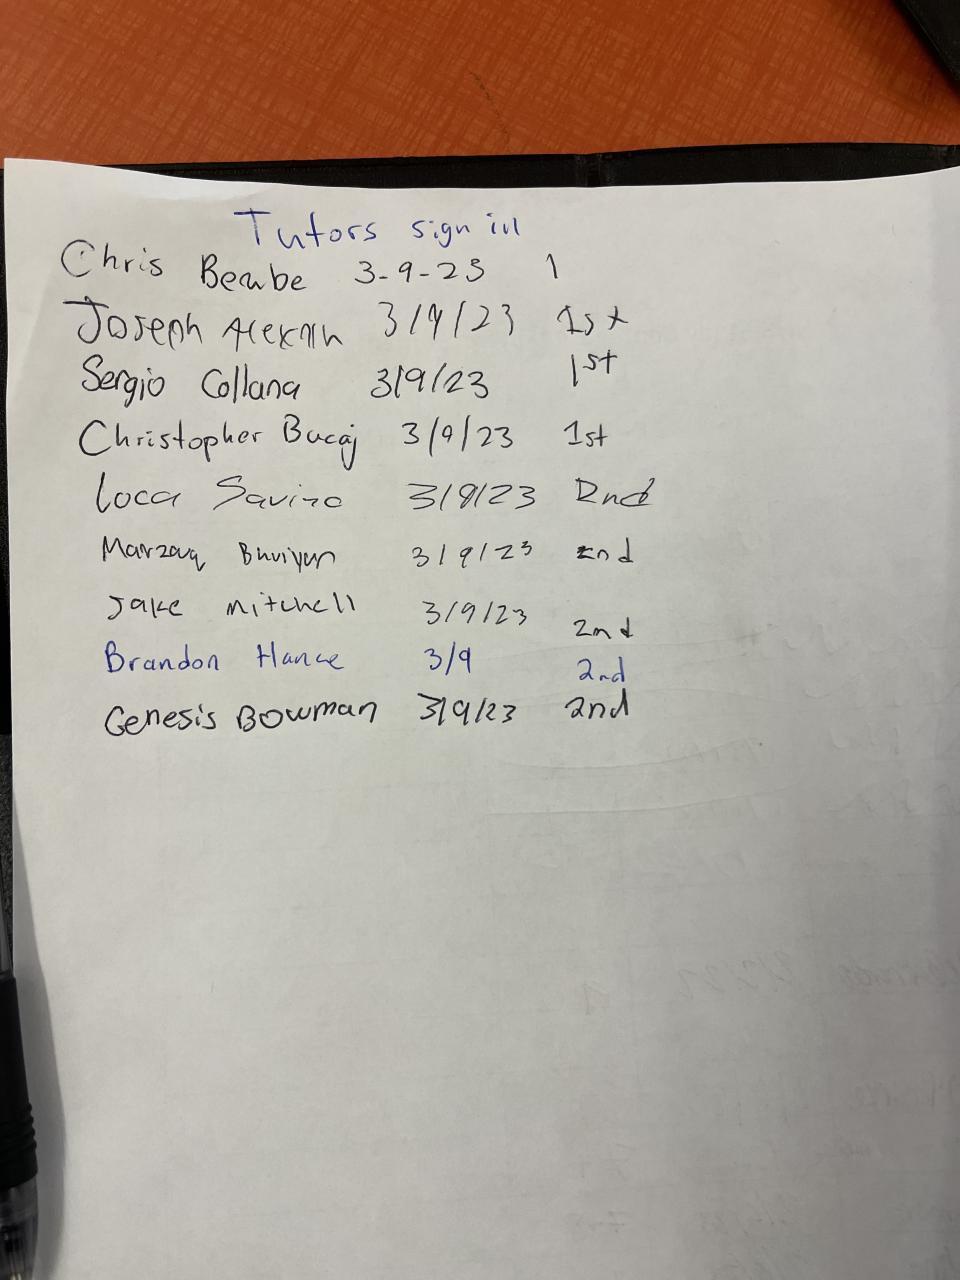 Tutors sign in
Chris Beabe 3-9-23 1
Joseph 3/9/23 1st
Sergio Collana 3/9/23 1st
Christopher Bucaj 3/9/23 1st
Loca Savino 3/9/23 2nd
Marzouq Bhuiyan 3/9/23 2nd
Jake Mitchell 3/9/23 2nd
Brandon Hance 3/9 2nd
Genesis Bowman 3/9/23 2nd